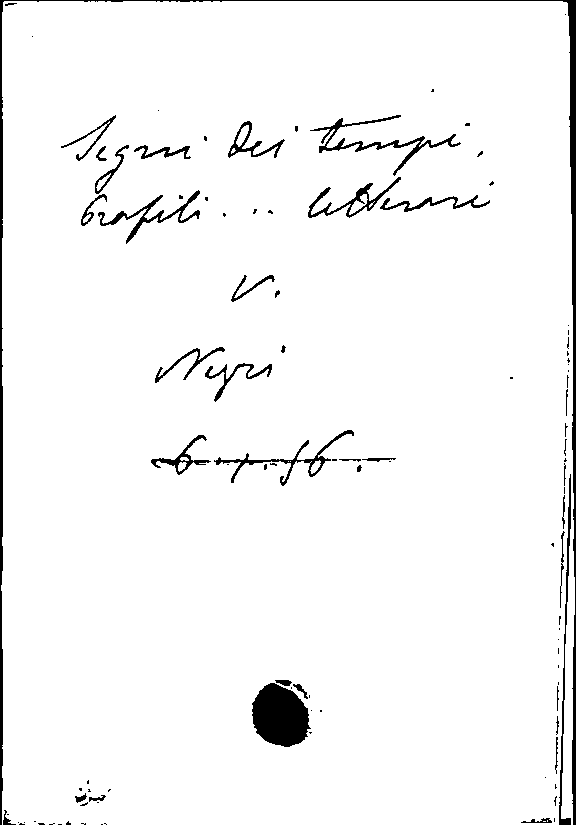 Segni dei tempi,
Profili... letterari
V.
Negri
6.1.56.